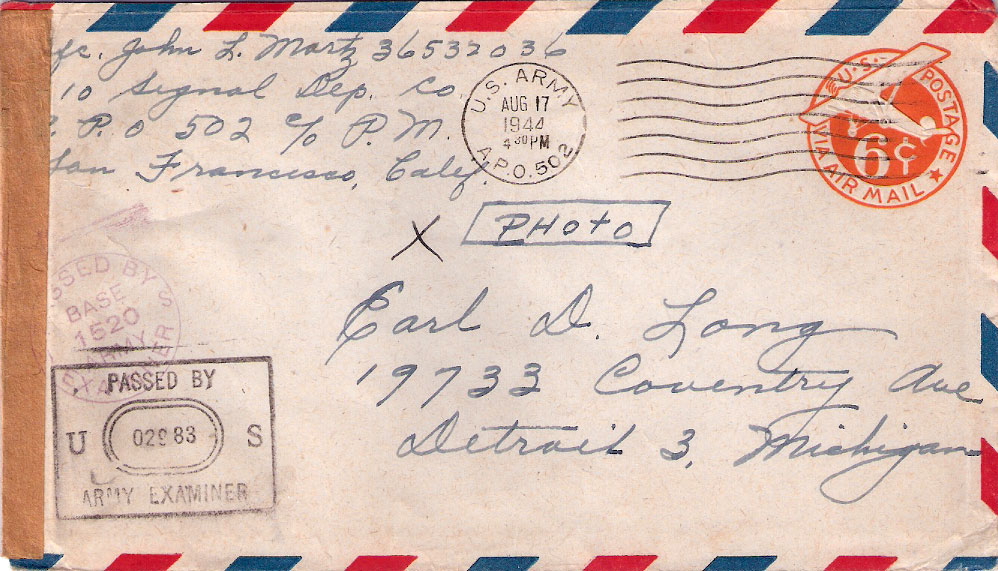 fc. John L. Martz 36532036
10 Signal Dep. Co.
P. P. O 502 c/o P. M.
San Francisco, Calif.
U.S. ARMY
AUG 17
1944
4 30 PM
A.P.O. 502
U.S. POSTAGE
6¢
VIA AIR MAIL
X
PHOTO
Earl D. Long
19733 Coventry Ave
Detroit 3, Michigan
SSED BY
BASE
1520
ARMY
EXAMINER
S
PASSED BY
U 02983 S
ARMY EXAMINER